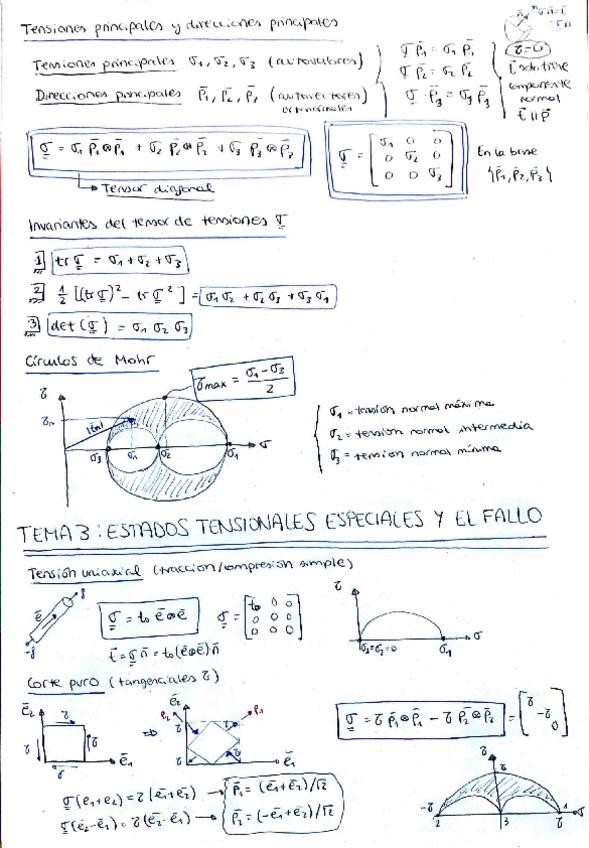 Tensiones principales y direcciones principales
Tensiones principales σ₁, σ₂, σ₃ (autovalores)
Direcciones principales p̄₁, p̄₂, p̄₃ (autovectores ortonormales)
σ p̄₁ = σ₁ p̄₁
σ p̄₂ = σ₂ p̄₂
σ · p̄₃ = σ₃ p̄₃
(τ=0)
t̄ solo tiene
componente
normal
t̄ || p̄
σ = σ₁ p̄₁⊗p̄₁ + σ₂ p̄₂⊗p̄₂ + σ₃ p̄₃⊗p̄₃
→ Tensor diagonal
σ = [σ₁ 0 0
0 σ₂ 0
0 0 σ₃]
En la base
{p̄₁, p̄₂, p̄₃}
Invariantes del tensor de tensiones σ
1 tr σ = σ₁ + σ₂ + σ₃
2 1/2 [(tr σ)² - tr σ²] = σ₁σ₂ + σ₂σ₃ + σ₃σ₁
3 det(σ) = σ₁ σ₂ σ₃
Círculos de Mohr
τmax = (σ₁ - σ₃)/2
τ
τn
σ₃ σn σ₂ σ₁ σ
σ₁ = tensión normal máxima
σ₂ = tensión normal intermedia
σ₃ = tension normal mínima
TEMA 3: ESTADOS TENSIONALES ESPECIALES Y EL FALLO
Tensión uniaxial (traccion/compresión simple)
ē
σ = t₀ ē⊗ē
σ = [t₀ 0 0
0 0 0
0 0 0]
t̄ = σ n̄ = t₀(ē⊗ē)n̄
τ
σ₂=σ₃=0 σ₁ σ
Corte puro (tangenciales τ)
ē₂ τ τ τ τ ē₁
⇒
ē₂ p̄₂ p̄₁ ē₁
σ = τ p̄₁⊗p̄₁ - τ p̄₂⊗p̄₂ = [τ
-τ
0]
σ(ē₁+ē₂) = τ(ē₁+ē₂) → p̄₁ = (ē₁+ē₂)/√2
σ(ē₂-ē₁) = τ(ē₂-ē₁) → p̄₂ = (-ē₁+ē₂)/√2
τ
-τ τ 1 σ
2 3